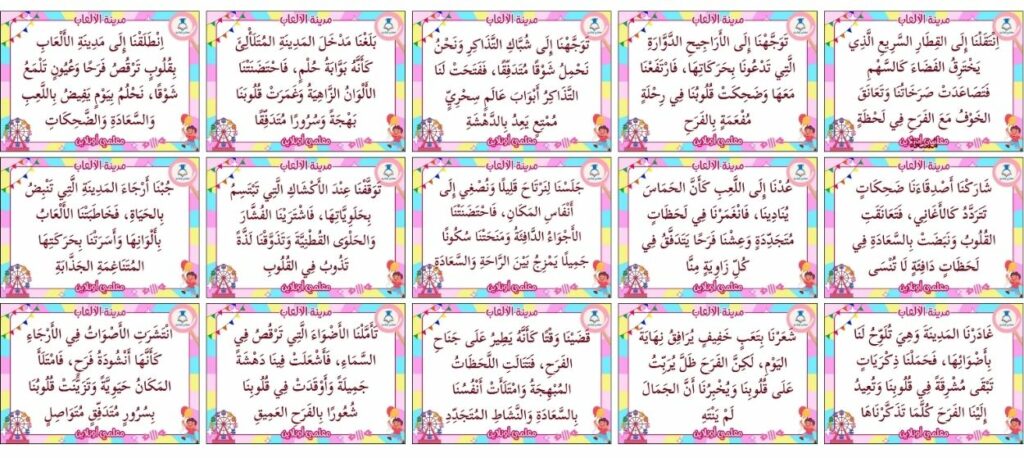 مدينة الألعاب
اِنْطَلَقْنَا إِلَى مَدِينَةِ الأَلْعَابِ
بِقُلُوبٍ تَرْقُصُ فَرَحًا وَعُيُونٍ تَلْمَعُ
شَوْقًا، نَحْلُمُ بِيَوْمٍ يَفِيضُ بِاللَّعِبِ
وَالسَّعَادَةِ وَالضَّحِكَاتِ
معلمي أونلاين
مدينة الألعاب
بَلَغْنَا مَدْخَلَ المَدِينَةِ المُتَلَأْلِئَ
كَأَنَّهُ بَوَّابَةُ حُلْمٍ، فَاحْتَضَنَتْنَا
الأَلْوَانُ الزَّاهِيَةُ وَغَمَرَتْ قُلُوبَنَا
بَهْجَةً وَسُرُورًا مُتَدَفِّقًا
معلمي أونلاين
مدينة الألعاب
تَوَجَّهْنَا إِلَى شُبَّاكِ التَّذَاكِرِ وَنَحْنُ
نَحْمِلُ شَوْقًا مُتَدَفِّقًا، فَفَتَحَتْ لَنَا
التَّذَاكِرُ أَبْوَابَ عَالَمٍ سِحْرِيٍّ
مُمْتِعٍ يَعِدُ بِالدَّهْشَةِ
معلمي أونلاين
مدينة الألعاب
تَوَجَّهْنَا إِلَى الأَرَاجِيحِ الدَّوَّارَةِ
الَّتِي تَدْعُونَا بِحَرَكَاتِهَا، فَارْتَفَعْنَا
مَعَهَا وَضَحِكَتْ قُلُوبُنَا فِي رِحْلَةٍ
مُفْعَمَةٍ بِالفَرَحِ
معلمي أونلاين
مدينة الألعاب
اِنْتَقَلْنَا إِلَى القِطَارِ السَّرِيعِ الَّذِي
يَخْتَرِقُ الفَضَاءَ كَالسَّهْمِ
فَتَصَاعَدَتْ صَرَخَاتُنَا وَتَعَانَقَ
الخَوْفُ مَعَ الفَرَحِ فِي لَحْظَةٍ
معلمي أونلاين
مدينة الألعاب
جُبْنَا أَرْجَاءَ المَدِينَةِ الَّتِي تَنْبِضُ
بِالحَيَاةِ، فَخَاطَبَتْنَا الأَلْعَابُ
بِأَلْوَانِهَا وَأَسَرَتْنَا بِحَرَكَتِهَا
المُتَنَاغِمَةِ الجَذَّابَةِ
معلمي أونلاين
مدينة الألعاب
تَوَقَّفْنَا عِنْدَ الأَكْشَاكِ الَّتِي تَبْتَسِمُ
بِحَلَوِيَّاتِهَا، فَاشْتَرَيْنَا الفُشَارَ
وَالحَلْوَى القُطْنِيَّةَ وَتَذَوَّقْنَا لَذَّةً
تَذُوبُ فِي القُلُوبِ
معلمي أونلاين
مدينة الألعاب
جَلَسْنَا لِنَرْتَاحَ قَلِيلًا وَنُصْغِي إِلَى
أَنْفَاسِ المَكَانِ، فَاحْتَضَنَتْنَا
الأَجْوَاءُ الدَّافِئَةُ وَمَنَحَتْنَا سُكُونًا
جَمِيلًا يَمْزِجُ بَيْنَ الرَّاحَةِ وَالسَّعَادَةِ
معلمي أونلاين
مدينة الألعاب
عُدْنَا إِلَى اللَّعِبِ كَأَنَّ الحَمَاسَ
يُنَادِينَا، فَانْغَمَرْنَا فِي لَحَظَاتٍ
مُتَجَدِّدَةٍ وَعِشْنَا فَرَحًا يَتَدَفَّقُ فِي
كُلِّ زَاوِيَةٍ مِنَّا
معلمي أونلاين
مدينة الألعاب
شَارَكْنَا أَصْدِقَاءَنَا ضَحِكَاتٍ
تَتَرَدَّدُ كَالأَغَانِي، فَتَعَانَقَتِ
القُلُوبُ وَنَبَضَتْ بِالسَّعَادَةِ فِي
لَحَظَاتٍ دَافِئَةٍ لَا تُنْسَى
معلمي أونلاين
مدينة الألعاب
اُنْتَشَرَتِ الأَصْوَاتُ فِي الأَرْجَاءِ
كَأَنَّهَا أُنْشُودَةُ فَرَحٍ، فَامْتَلَأَ
المَكَانُ حَيَوِيَّةً وَتَزَيَّنَتْ قُلُوبُنَا
بِسُرُورٍ مُتَدَفِّقٍ مُتَوَاصِلٍ
معلمي أونلاين
مدينة الألعاب
تَأَمَّلْنَا الأَضْوَاءَ الَّتِي تَرْقُصُ فِي
السَّمَاءِ، فَأَشْعَلَتْ فِينَا دَهْشَةً
جَمِيلَةً وَأَوْقَدَتْ فِي قُلُوبِنَا
شُعُورًا بِالفَرَحِ العَمِيقِ
معلمي أونلاين
مدينة الألعاب
قَضَيْنَا وَقْتًا كَأَنَّهُ يَطِيرُ عَلَى جَنَاحِ
الفَرَحِ، فَتَتَالَتِ اللَّحَظَاتُ
المُبْهِجَةُ وَامْتَلَأَتْ أَنْفُسُنَا
بِالسَّعَادَةِ وَالنَّشَاطِ المُتَجَدِّدِ
معلمي أونلاين
مدينة الألعاب
شَعَرْنَا بِتَعَبٍ خَفِيفٍ يُرَافِقُ نِهَايَةَ
اليَوْمِ، لَكِنَّ الفَرَحَ ظَلَّ يُرَبِّتُ
عَلَى قُلُوبِنَا وَيُخْبِرُنَا أَنَّ الجَمَالَ
لَمْ يَنْتَهِ
معلمي أونلاين
مدينة الألعاب
غَادَرْنَا المَدِينَةَ وَهِيَ تُلَوِّحُ لَنَا
بِأَضْوَائِهَا، فَحَمَلْنَا ذِكْرَيَاتٍ
تَبْقَى مُشْرِقَةً فِي قُلُوبِنَا وَتُعِيدُ
إِلَيْنَا الفَرَحَ كُلَّمَا تَذَكَّرْنَاهَا
معلمي أونلاين